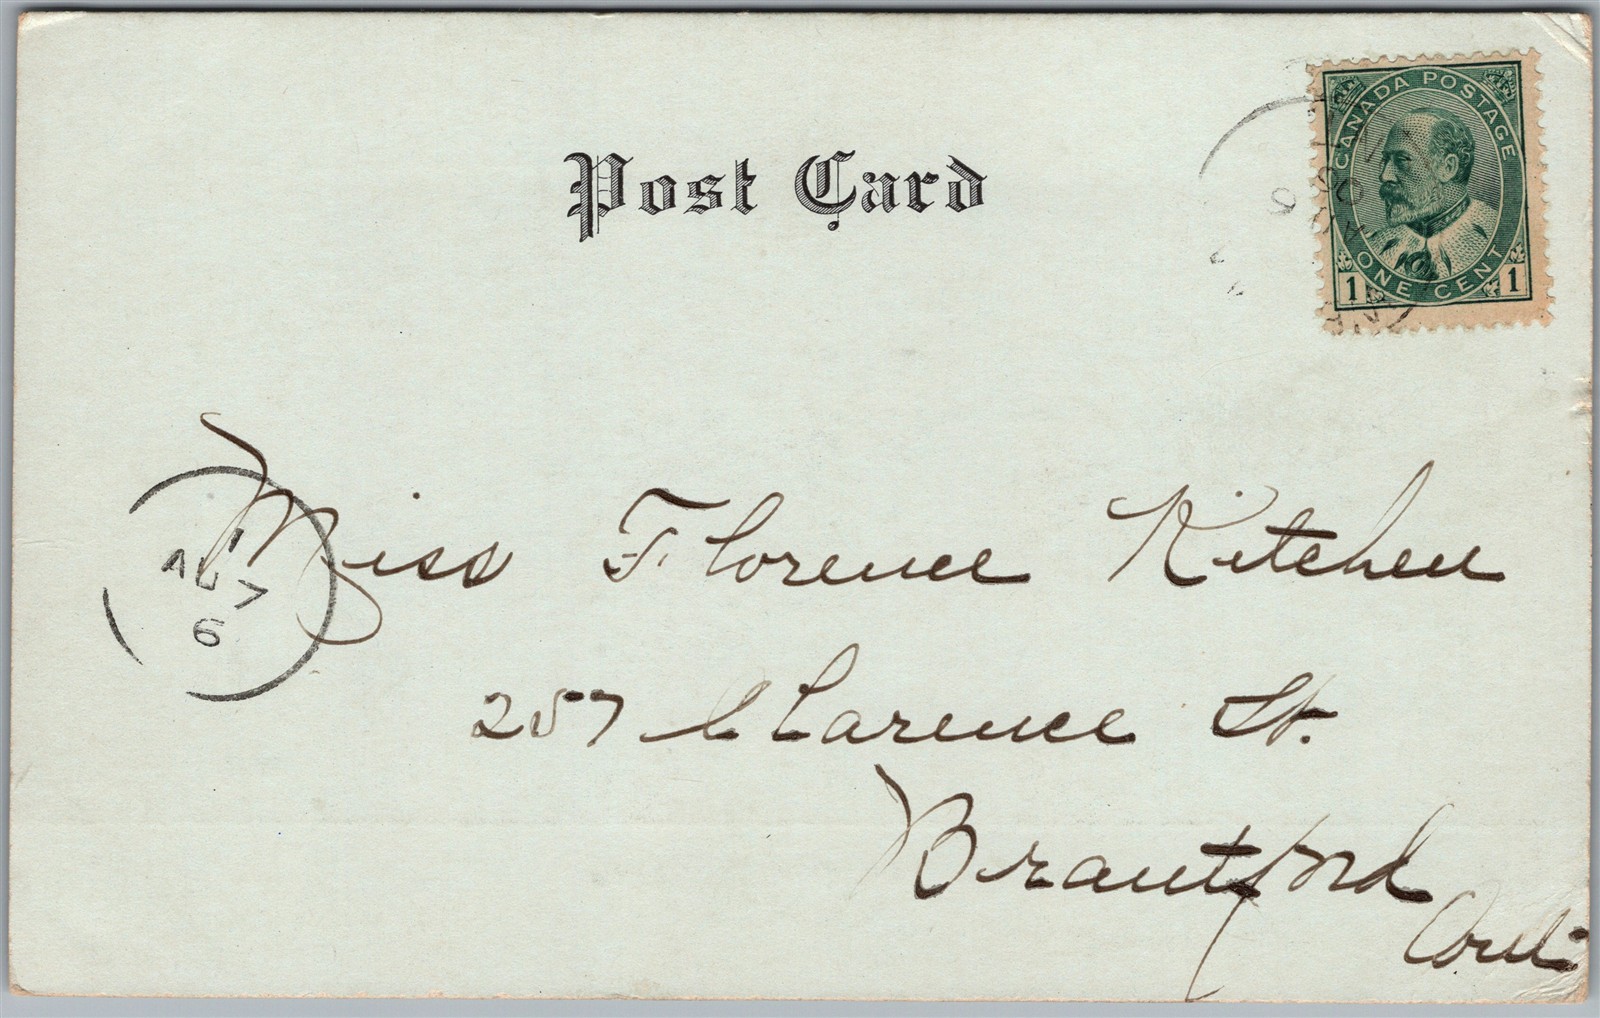 Post Card
CANADA POSTAGE
ONE CENT
1 1
AU 7
6
Miss Florence Kitchen
257 Clarence St.
Brantford
Ont.